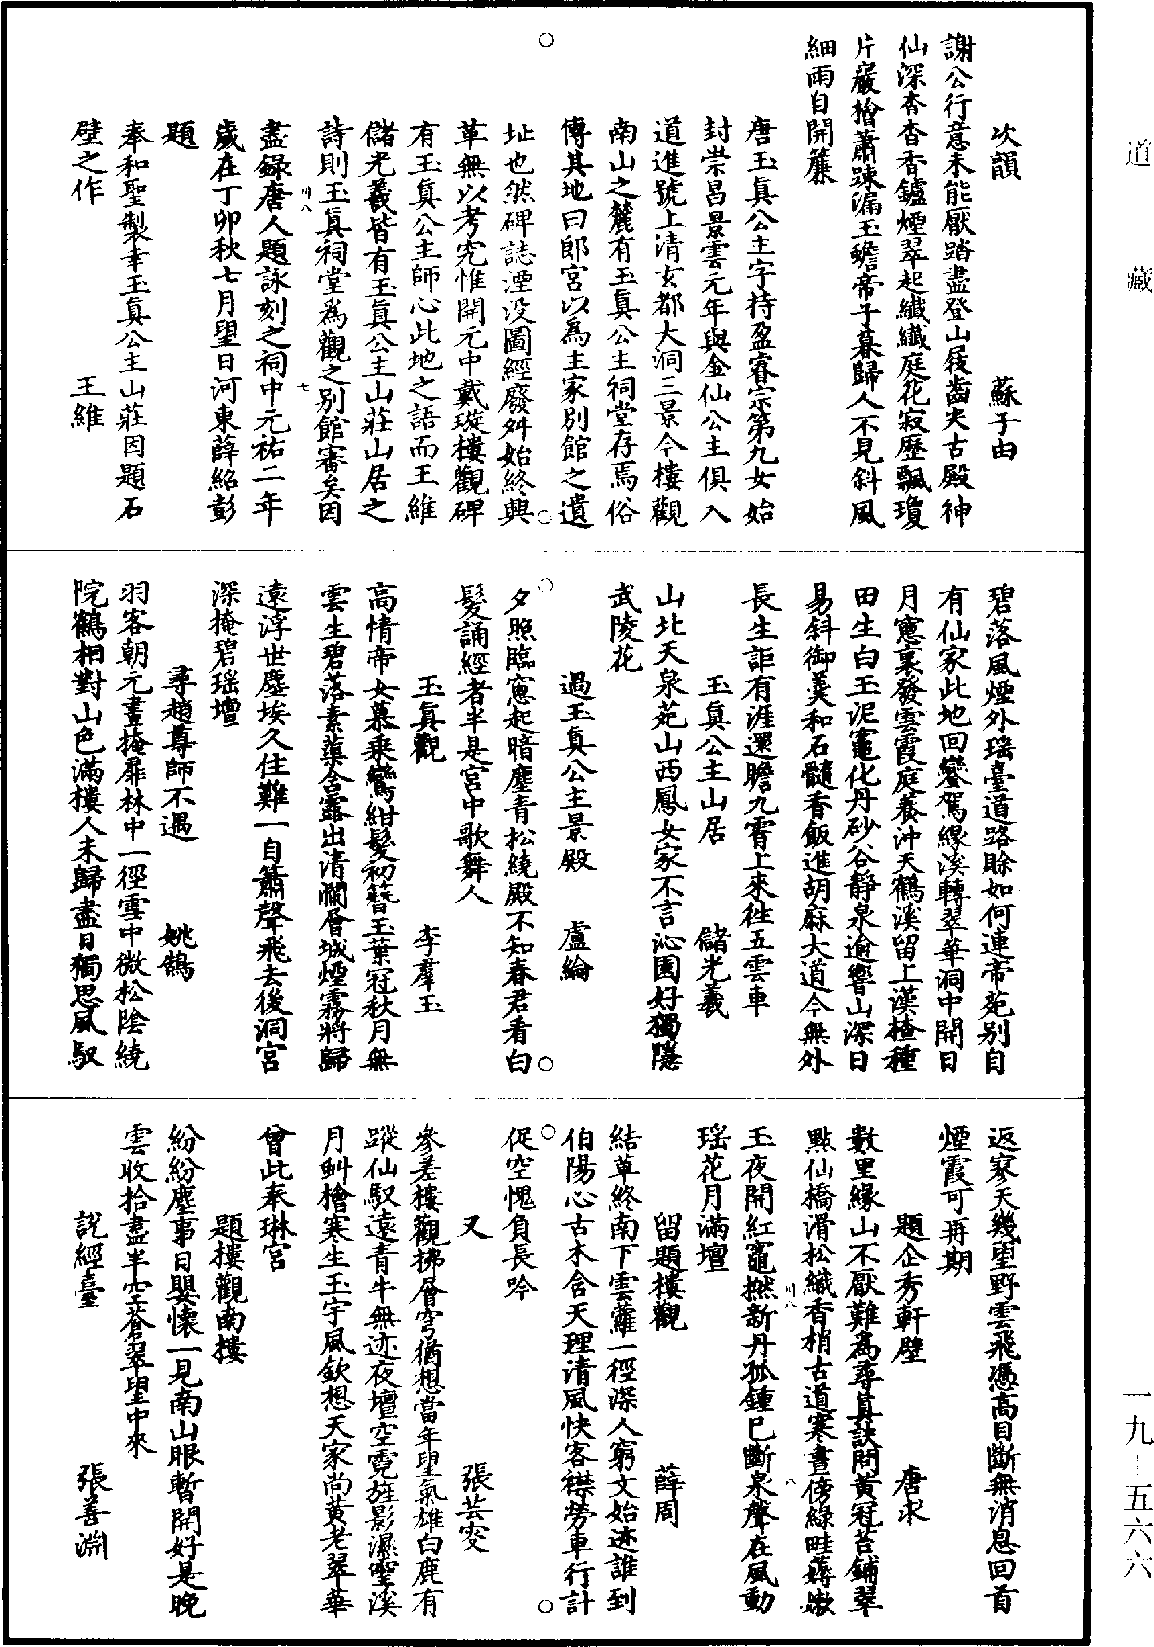 道藏
次韻　蘇子由
謝公行意未能厭踏盡登山屐齒尖古殿神
仙深杳杳香鑪煙翠起纖纖庭花寂歷飄瓊
片巖檜蕭踈漏玉蟾帝子暮歸人不見斜風
細雨自開簾
唐玉真公主字持盈睿宗第九女始
封崇昌景雲元年與金仙公主俱入
道進號上清玄都大洞三景今樓觀
南山之麓有玉真公主祠堂存焉俗
傳其地曰郎宮以為主家別館之遺
址也然碑誌湮没圖經廢舛始終興
革無以考究惟開元中戴璇樓觀碑
有玉真公主師心此地之語而王維
儲光羲皆有玉真公主山莊山居之
詩則玉真祠堂為觀之別館審矣因
川八　七
盡錄唐人題詠刻之祠中元祐二年
歲在丁卯秋七月望日河東薛紹彭
題
奉和聖製幸玉真公主山莊因題石
壁之作　王維
碧落風煙外瑶臺道路賒如何連帝苑別自
有仙家此地回鑾駕緣溪轉翠華洞中開日
月窻裏發雲霞庭養沖天鶴溪留上漢楂種
田生白玉泥竈化丹砂谷靜泉逾響山深日
易斜御羹和石髓香飯進胡麻大道今無外
長生詎有涯還瞻九霄上來往五雲車
玉真公主山居　儲光羲
山北天泉苑山西鳳女家不言沁園好獨隱
武陵花
過玉真公主景殿　盧綸
夕照臨窻起暗塵青松繞殿不知春君看白
髮誦經者半是宮中歌舞人
玉真觀　李羣玉
高情帝女慕乘鸞紺髮初簪玉葉冠秋月無
雲生碧落素蕖含露出清瀾層城煙霧將歸
遠浮世塵埃久住難一自簫聲飛去後洞宮
深掩碧瑶壇
尋趙尊師不遇　姚鵠
羽客朝元晝掩扉林中一徑雪中微松陰繞
院鶴相對山色滿樓人未歸盡日獨思風馭
返寥天幾望野雲飛憑高目斷無消息回首
煙霞可再期
題企秀軒壁　唐求
數里緣山不厭難為尋真訣問黃冠苔鋪翠
點仙橋滑松織香梢古道寒晝傍綠畦薅嫩
川八　八
玉夜開紅竈撚新丹孤鍾已斷泉聲在風動
瑶花月滿壇
留題樓觀　薛周
結草終南下雲蘿一徑深人窮文始迹誰到
伯陽心古木含天理清風快客襟勞車行計
促空愧負長吟
又　張芸叟
參差樓觀拂層穹猶想當年望氣雄白鹿有
蹤仙馭遠青牛無迹夜壇空霓旌影濕瑩溪
月虯檜寒生玉宇風欽想天家尚黃老翠華
曾此奉琳宮
題樓觀南樓
紛紛塵事日嬰懷一見南山眼暫開好是晚
雲收拾盡半空蒼翠望中來
說經臺　張善淵
一九—五六六